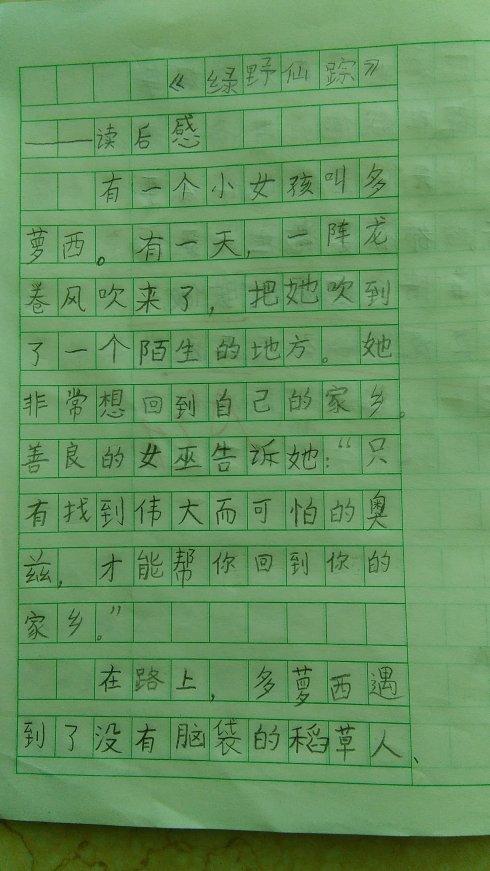 《绿野仙踪》
——读后感
有一个小女孩叫多
萝西。有一天，一阵龙
卷风吹来了，把她吹到
了一个陌生的地方。她
非常想回到自己的家乡。
善良的女巫告诉她：“只
有找到伟大而可怕的奥
兹，才能帮你回到你的
家乡。”
在路上，多萝西遇
到了没有脑袋的稻草人、